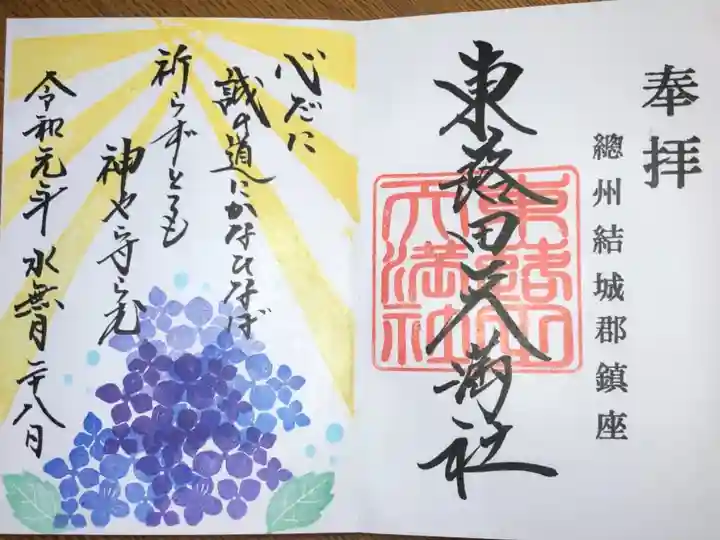 奉拝
總州結城郡鎮座
東蕗田天満社
東蕗田
天満社
心だに
誠の道にかなひなば
祈らずとても
神や守らむ
令和元年 水無月 二十八日